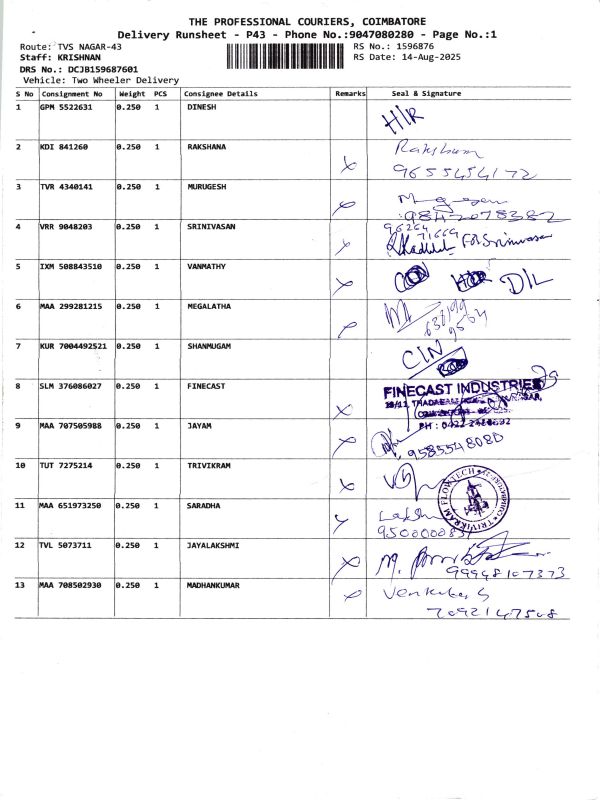 THE PROFESSIONAL COURIERS, COIMBATORE
Delivery Runsheet - P43 - Phone No.:9047080280 - Page No.:1
Route: TVS NAGAR-43 RS No.: 1596876
Staff: KRISHNAN RS Date: 14-Aug-2025
DRS No.: DCJB159687601
Vehicle: Two Wheeler Delivery
S No Consignment No Weight PCS Consignee Details Remarks Seal & Signature
1 GPM 5522631 0.250 1 DINESH H/R
2 KDI 841260 0.250 1 RAKSHANA
9655454172
3 TVR 4340141 0.250 1 MURUGESH
9842078382
4 VRR 9048203 0.250 1 SRINIVASAN 96264
71664
For Srinivasan
5 IXM 508843510 0.250 1 VANMATHY D/L
6 MAA 299281215 0.250 1 MEGALATHA
7 KUR 7004492521 0.250 1 SHANMUGAM C/N
8 SLM 376086027 0.250 1 FINECAST FINECAST INDUSTRIES
9 MAA 707505988 0.250 1 JAYAM
9585548080
10 TUT 7275214 0.250 1 TRIVIKRAM TRIVIKRAM FLOWTECH
11 MAA 651973250 0.250 1 SARADHA
12 TVL 5073711 0.250 1 JAYALAKSHMI
99948107373
13 MAA 708502930 0.250 1 MADHANKUMAR
7092147508